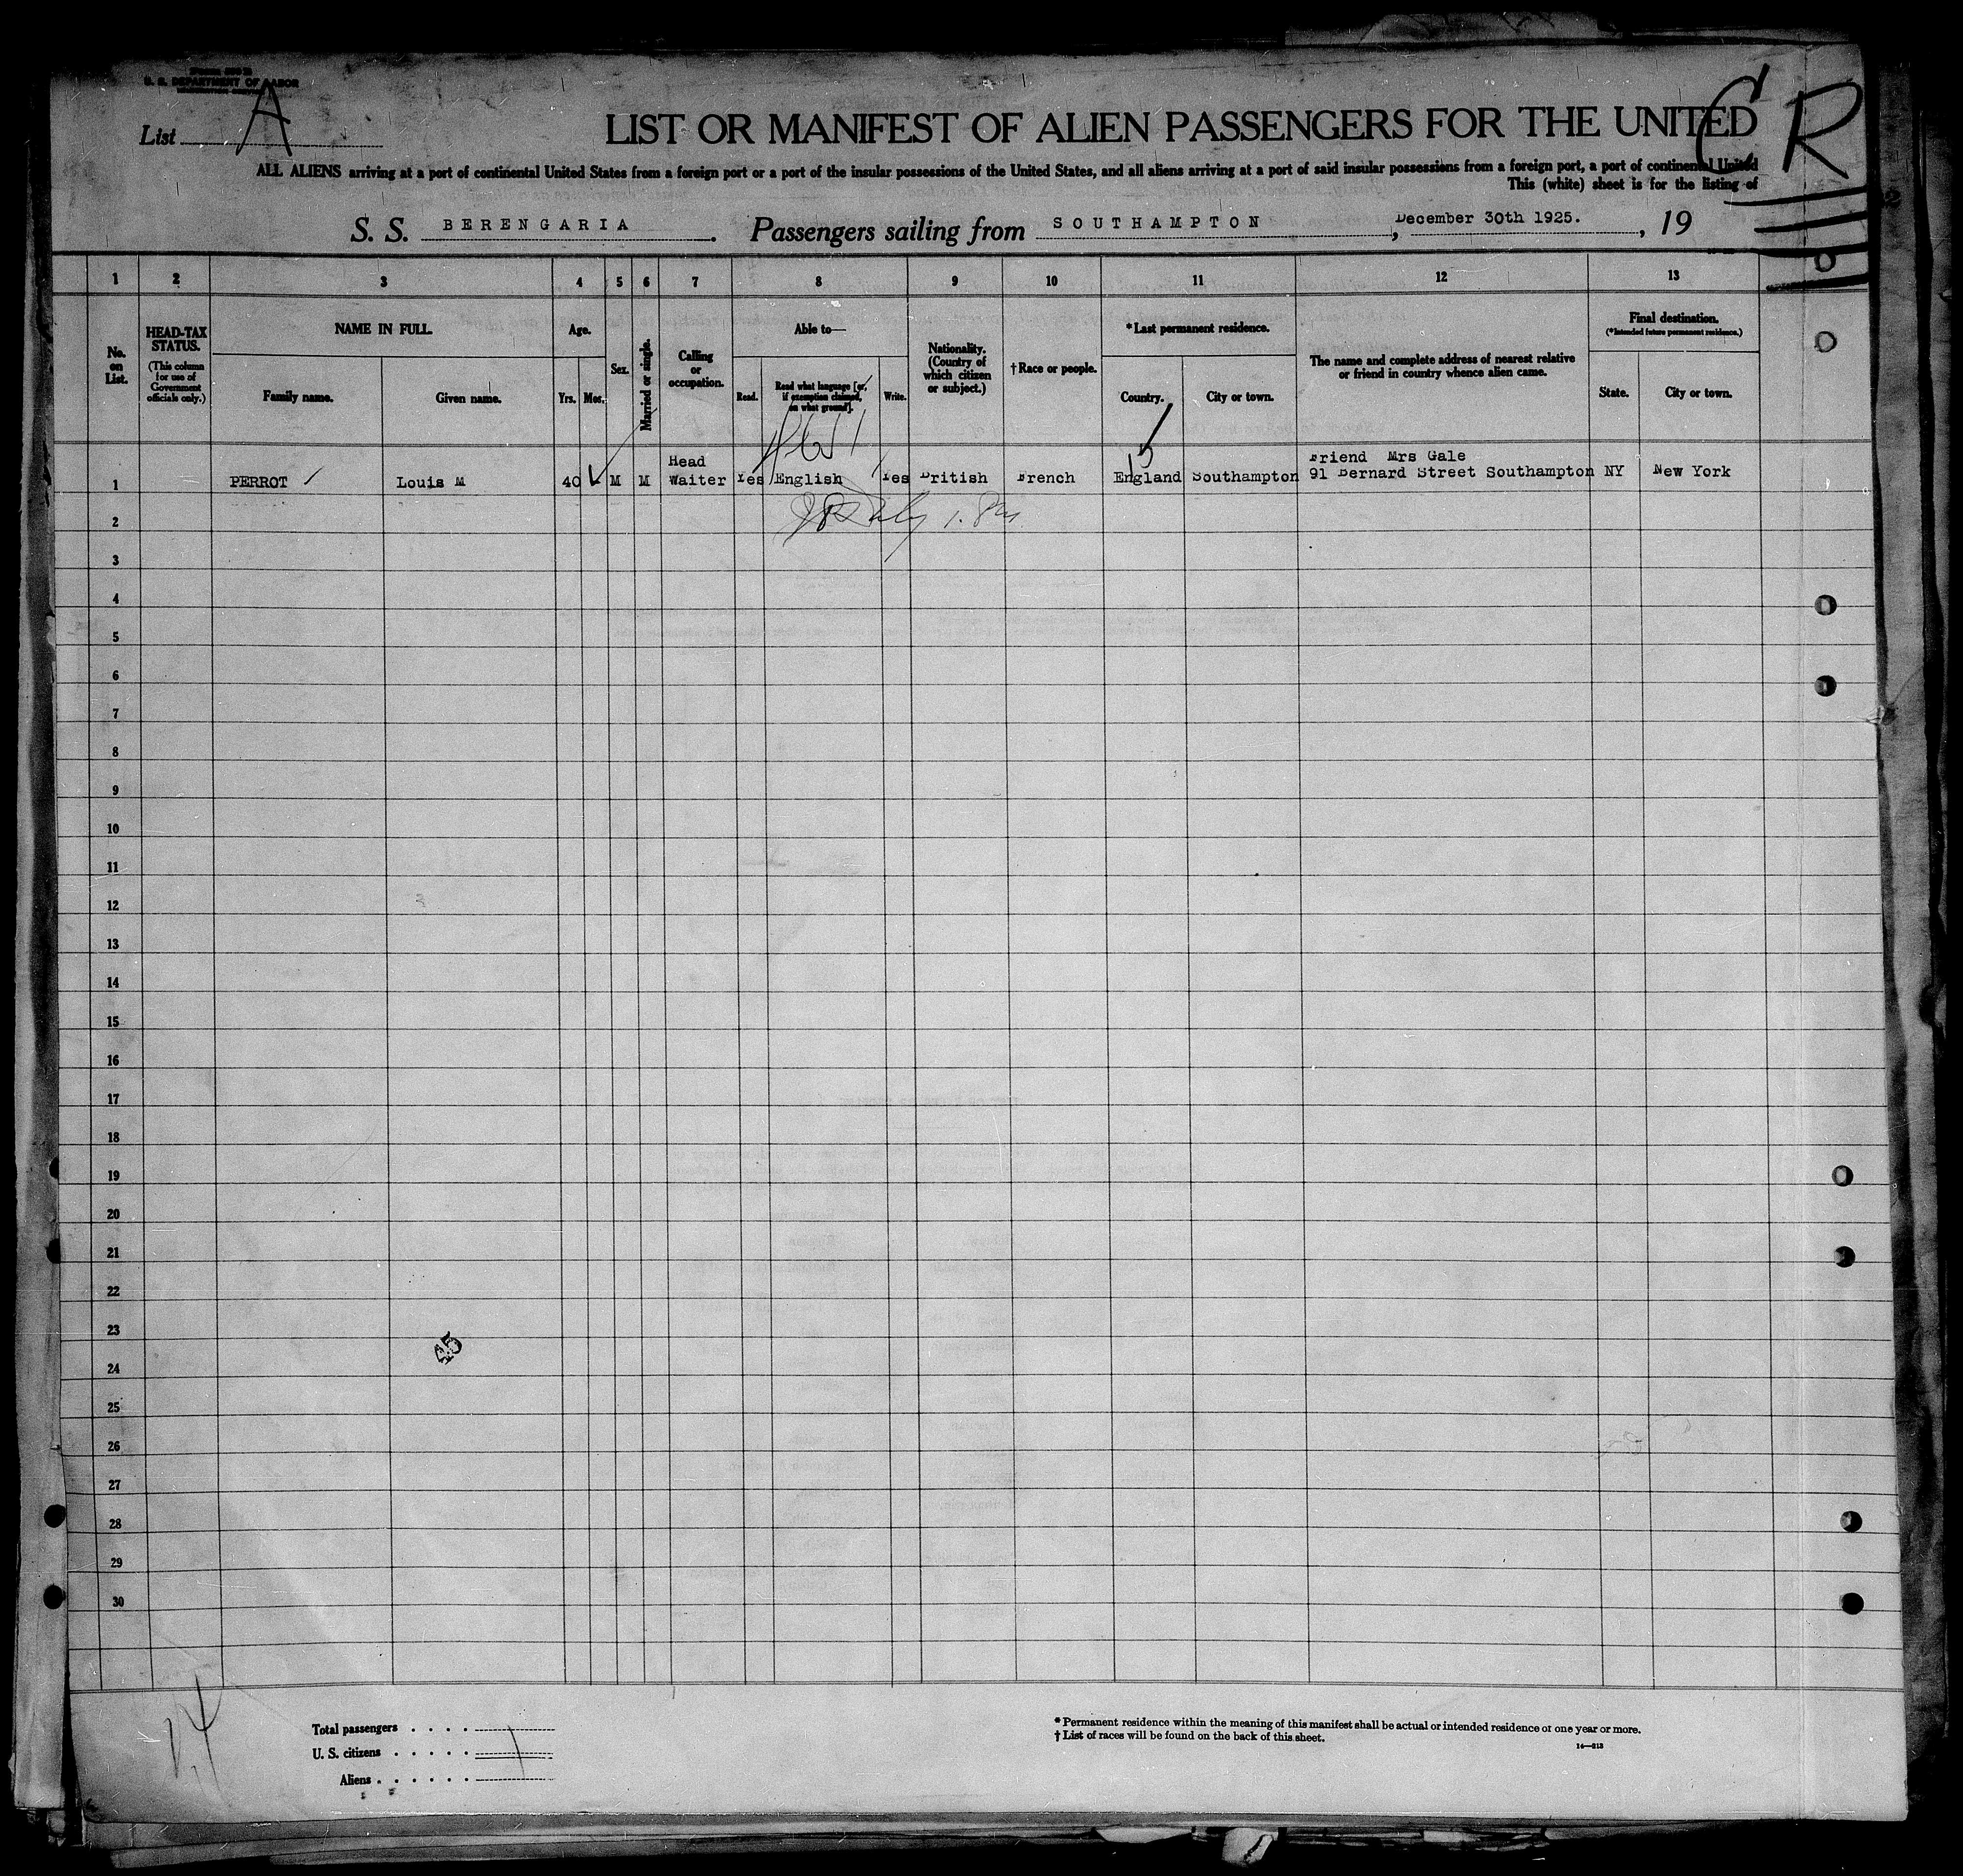 U. S. DEPARTMENT OF LABOR
List A
C R
LIST OR MANIFEST OF ALIEN PASSENGERS FOR THE UNITED
ALL ALIENS arriving at a port of continental United States from a foreign port or a port of the insular possessions of the United States, and all aliens arriving at a port of said insular possessions from a foreign port, a port of continental United
This (white) sheet is for the listing of
S. S. BERENGARIA. Passengers sailing from SOUTHAMPTON, December 30th 1925., 19
1 2 3 4 5 6 7 8 9 10 11 12 13
No. on List.
HEAD-TAX STATUS.
(This column for use of Government officials only.)
NAME IN FULL.
Family name. Given name.
Age.
Yrs. Mos.
Sex.
Married or single.
Calling or occupation.
Able to—
Read. Read what language [or, if exemption claimed, on what ground]. Write.
Nationality. (Country of which citizen or subject.)
†Race or people.
*Last permanent residence.
Country. City or town.
The name and complete address of nearest relative or friend in country whence alien came.
Final destination.
(*Intended future permanent residence.)
State. City or town.
Head Friend Mrs Gale
1 PERROT Louis M 40 M M Waiter Yes English Yes British French England Southampton 91 Bernard Street Southampton NY New York
2
3
4
5
6
7
8
9
10
11
12
13
14
15
16
17
18
19
20
21
22
23
45
24
25
26
27
28
29
30
Total passengers . . . .
U. S. citizens . . . . .
Aliens . . . . . .
*Permanent residence within the meaning of this manifest shall be actual or intended residence of one year or more.
†List of races will be found on the back of this sheet.
14—213